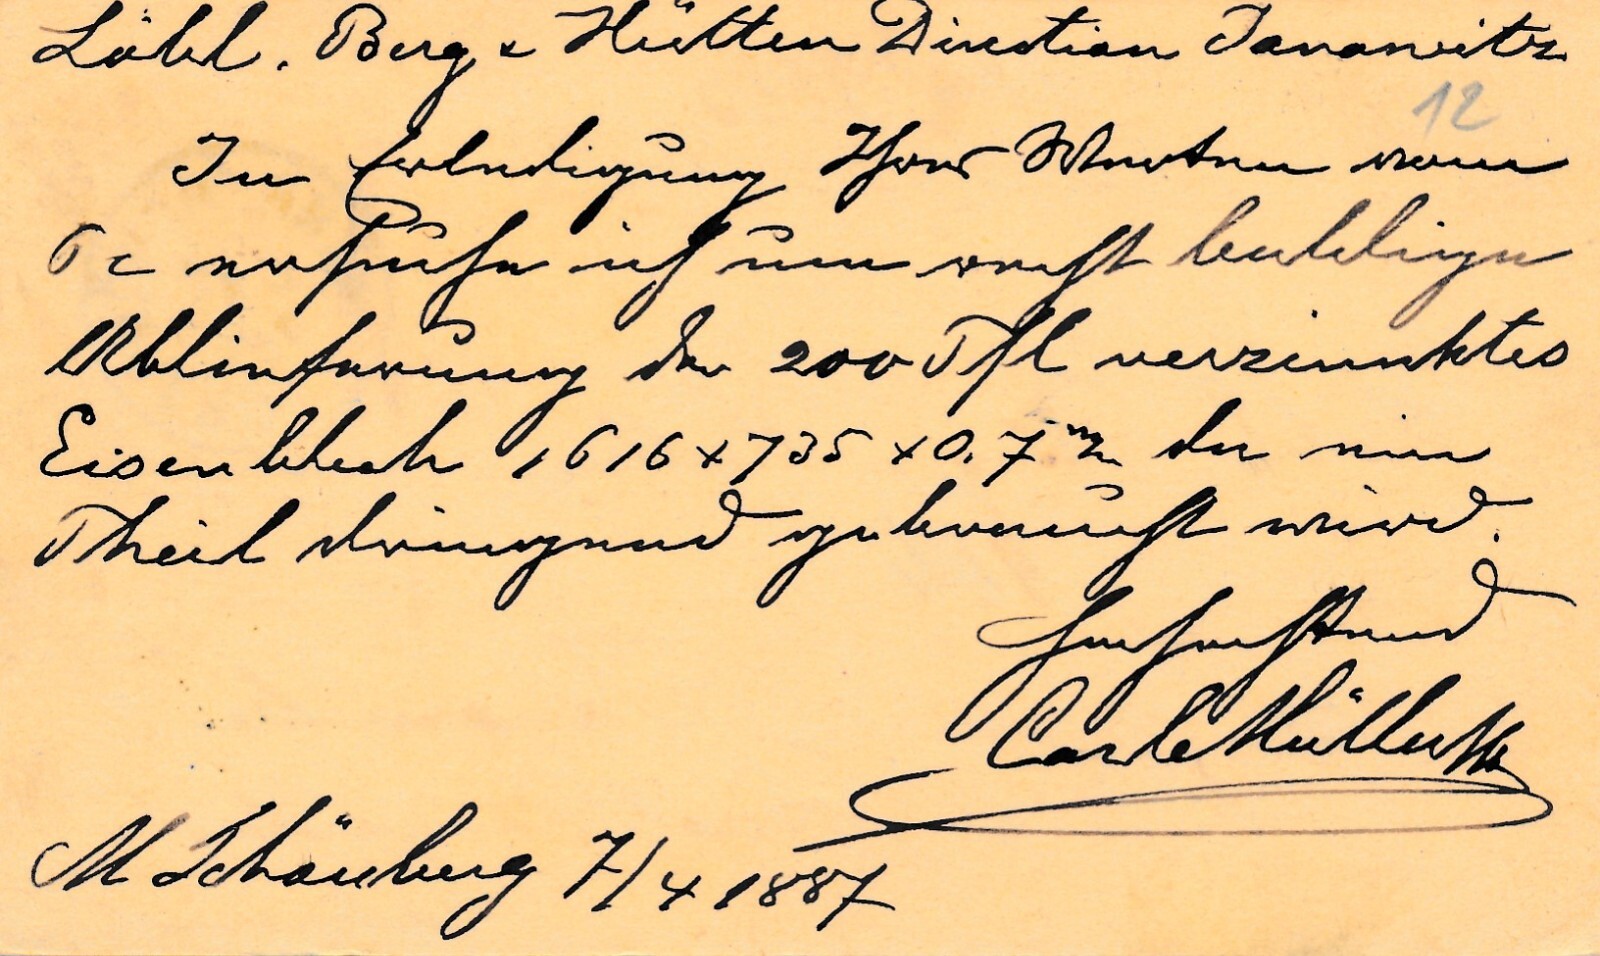 Löbl. Berg & Hütten Direction Janowitz
12
In Erledigung Ihres Werthen vom
6 c ersuche ich um recht baldige
Ablieferung der 200 Tfl verzinnktes
Eisenblech 1616 x 735 x 0.7 m/m der ein
Theil dringend gebraucht wird.
Hochachtend
Carl Müller
M Schönberg 7/4 1887